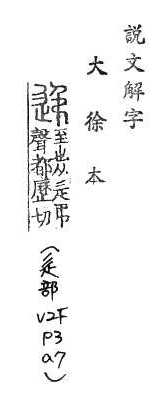 說文解字
大徐本
至也从辵弔
聲都歷切
(辵部
V2F
P3
a7)